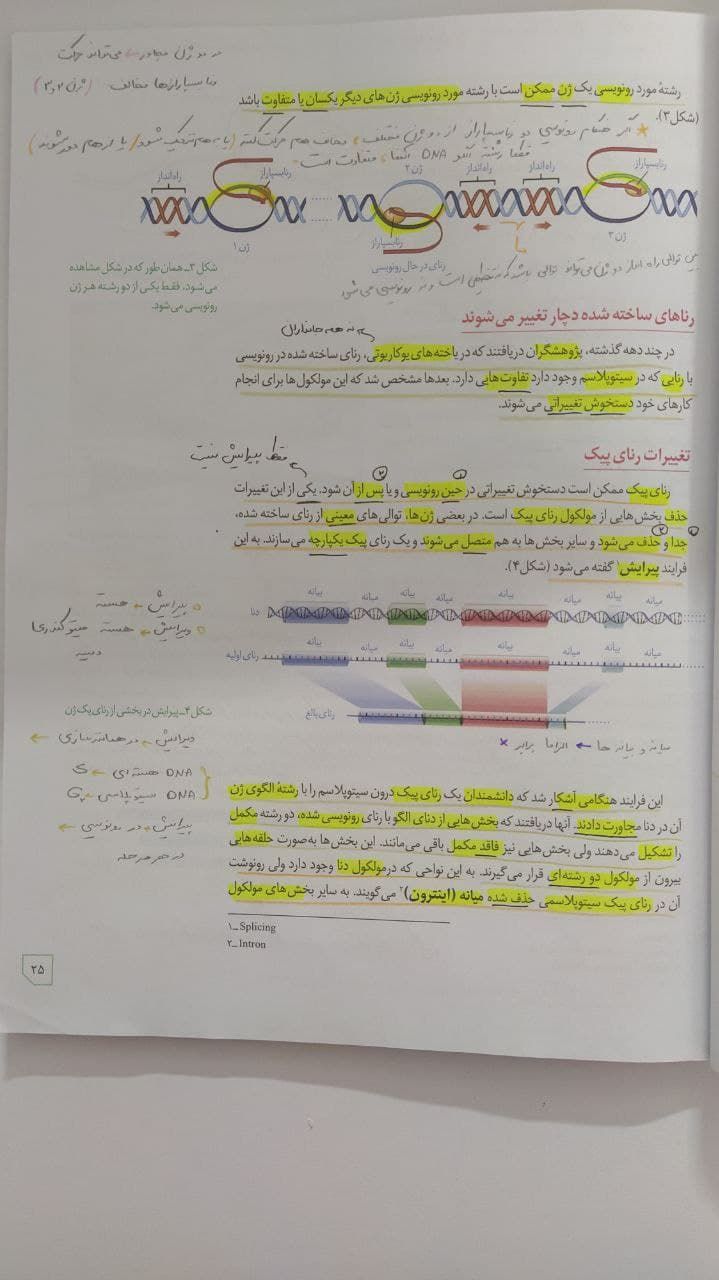 در دو ژن مجاور ← می‌تواند حرکت
رنابسپارازها مخالف (ژن ۲ و ۳)
رشتهٔ مورد رونویسی یک ژن ممکن است با رشته مورد رونویسی ژن‌های دیگر یکسان یا متفاوت باشد
(شکل۳).
★ اگر هنگام رونویسی دو رنابسپاراز از دو ژن مختلف، مخالف هم حرکت کنند (یا به هم نزدیک شوند / یا از هم دور شوند)
قطعا رشته الگو DNA آنها، متفاوت است
راه‌انداز
رنابسپاراز
ژن ۲
راه‌انداز
راه‌انداز
رنابسپاراز
ژن ۱
رنابسپاراز
رنای در حال رونویسی
ژن ۳
بین توالی راه انداز دو ژن می‌تواند توالی باشد که نه تنظیمی است و نه رونویسی می‌شود
شکل ۳ــ همان طور که در شکل مشاهده
می‌شود، فقط یکی از دو رشته هر ژن
رونویسی می‌شود.
رناهای ساخته شده دچار تغییر می‌شوند
نه همه جانداران
در چند دهه گذشته، پژوهشگران دریافتند که در یاخته‌های یوکاریوتی، رنای ساخته شده در رونویسی
با رنایی که در سیتوپلاسم وجود دارد تفاوت‌هایی دارد. بعدها مشخص شد که این مولکول‌ها برای انجام
کارهای خود دستخوش تغییراتی می‌شوند.
تغییرات رنای پیک
فقط پیرایش نیست
۱ ۲
رنای پیک ممکن است دستخوش تغییراتی در حین رونویسی و یا پس از آن شود. یکی از این تغییرات
حذف بخش‌هایی از مولکول رنای پیک است. در بعضی ژن‌ها، توالی‌های معینی از رنای ساخته شده،
۱ ۲
جدا و حذف می‌شود و سایر بخش‌ها به هم متصل می‌شوند و یک رنای پیک یکپارچه می‌سازند. به این
فرایند پیرایش۱ گفته می‌شود (شکل۴).
میانه بیانه میانه بیانه میانه بیانه میانه بیانه
دنا
میانه بیانه میانه بیانه میانه بیانه میانه بیانه
رنای اولیه
رنای بالغ
پیرایش ← هسته
ویرایش ← هسته میتوکندری
دیسه
شکل ۴ــ پیرایش در بخشی از رنای یک ژن
میانه و بیانه ها ← الزاما برابر ×
ویرایش ← در همانندسازی ←
DNA هسته‌ای ← S
DNA سیتوپلاسمی ← G
پیرایش ← در رونویسی ←
در هر مرحله
این فرایند هنگامی آشکار شد که دانشمندان یک رنای پیک درون سیتوپلاسم را با رشتهٔ الگوی ژن
آن در دنا مجاورت دادند. آنها دریافتند که بخش‌هایی از دنای الگو با رنای رونویسی شده، دو رشته مکمل
را تشکیل می‌دهند ولی بخش‌هایی نیز فاقد مکمل باقی می‌مانند. این بخش‌ها به‌صورت حلقه‌هایی
بیرون از مولکول دو رشته‌ای قرار می‌گیرند. به این نواحی که در مولکول دنا وجود دارد ولی رونوشت
آن در رنای پیک سیتوپلاسمی حذف شده میانه (اینترون)۲ می‌گویند. به سایر بخش‌های مولکول
۱ــ Splicing
۲ــ Intron
۲۵